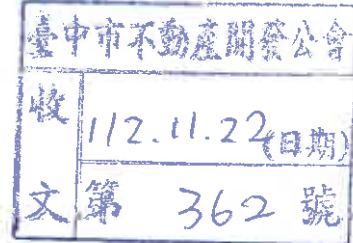 臺中市不動產開發公會
收 112.11.22(日期)
文 第 362 號